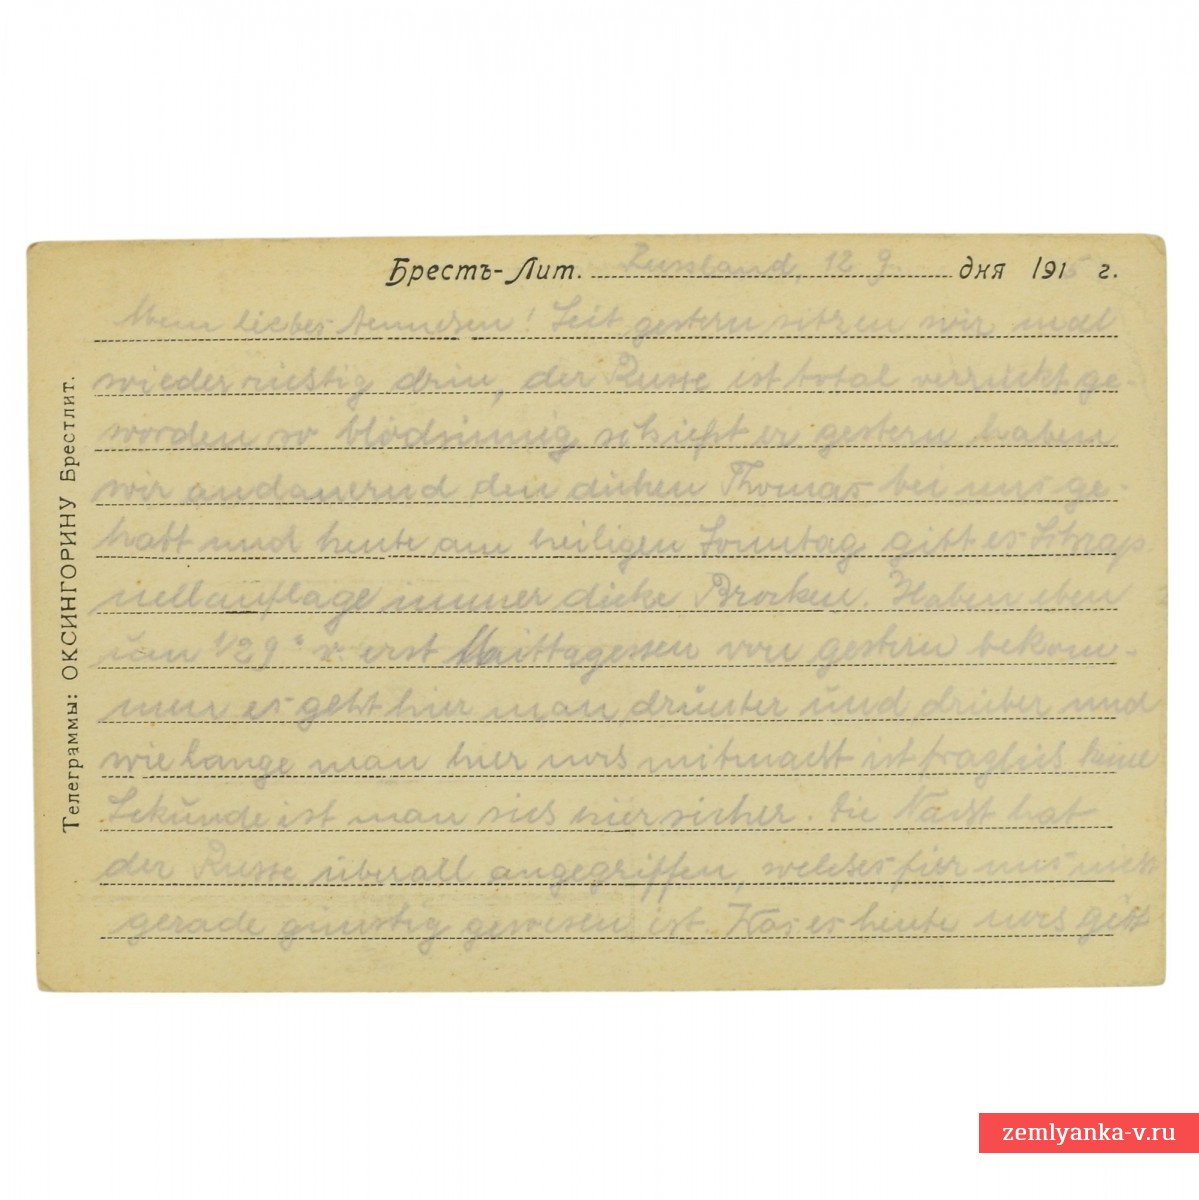 Брестъ-Лит. Russland, 12 9. дня 1915 г.
Mein liebes Aennchen! Seit gestern sitzen wir mal
wieder richtig drin, der Russe ist total verrückt ge-
worden so blödsinnig schießt er gestern haben
wir andauernd den dicken Thomas bei uns ge-
habt und heute am heiligen Sonntag gibt es Schrap
nellauflage immer dicke Brocken. Haben eben
um 1/2 9 v. erst Mittagessen von gestern bekom-
men es geht hier man drunter und drüber und
wie lange man hier noch mitmacht ist fraglich keine
Sekunde ist man sich hier sicher. Die Nacht hat
der Russe überall angegriffen, welches für uns nicht
gerade günstig gewesen ist. Was es heute noch gibt
Телеграммы: ОКСИНГОРИНУ Брестлит.
zemlyanka-v.ru